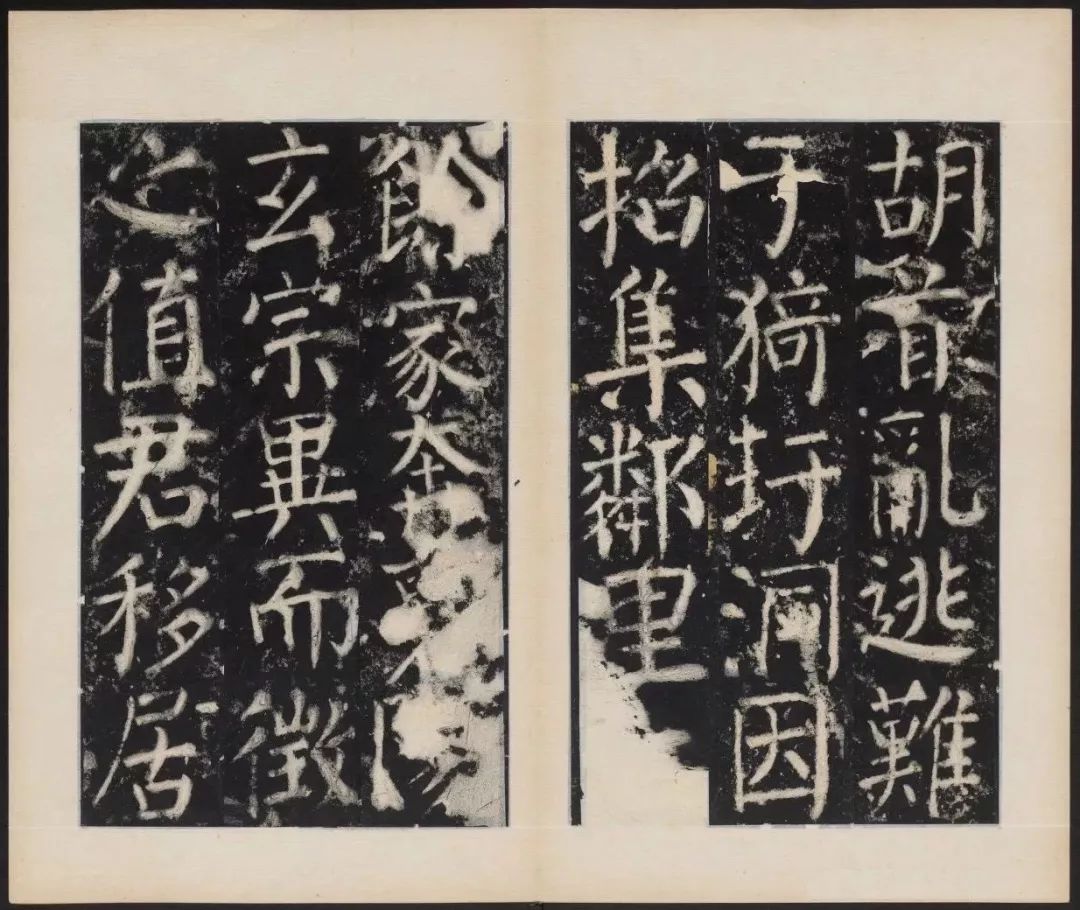 胡首亂逃難
于猗玗洞因
招集鄰里
餘家奔
玄宗異而徵
之值君移居